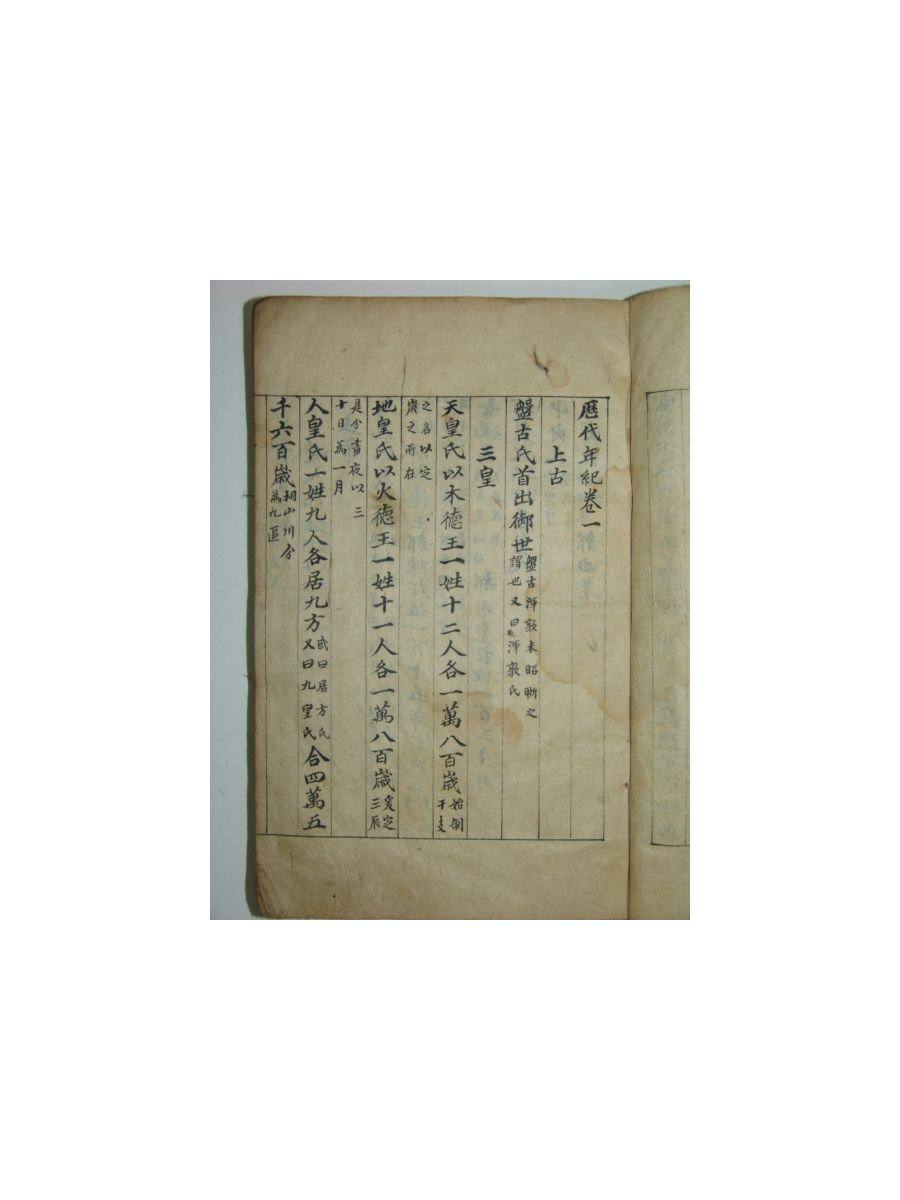 歷代年紀卷一
上古
盤古氏首出御世盤古渾敦未昭晣之謂也又曰渾敦氏
三皇
天皇氏以木德王一姓十二人各一萬八百歲始制干支
之名以定歲之所在
地皇氏以火德王一姓十一人各一萬八百歲爰定三辰
是分晝夜以三十日爲一月
人皇氏一姓九人各居九方或曰居方氏又曰九皇氏合四萬五
千六百歲相山川分爲九區